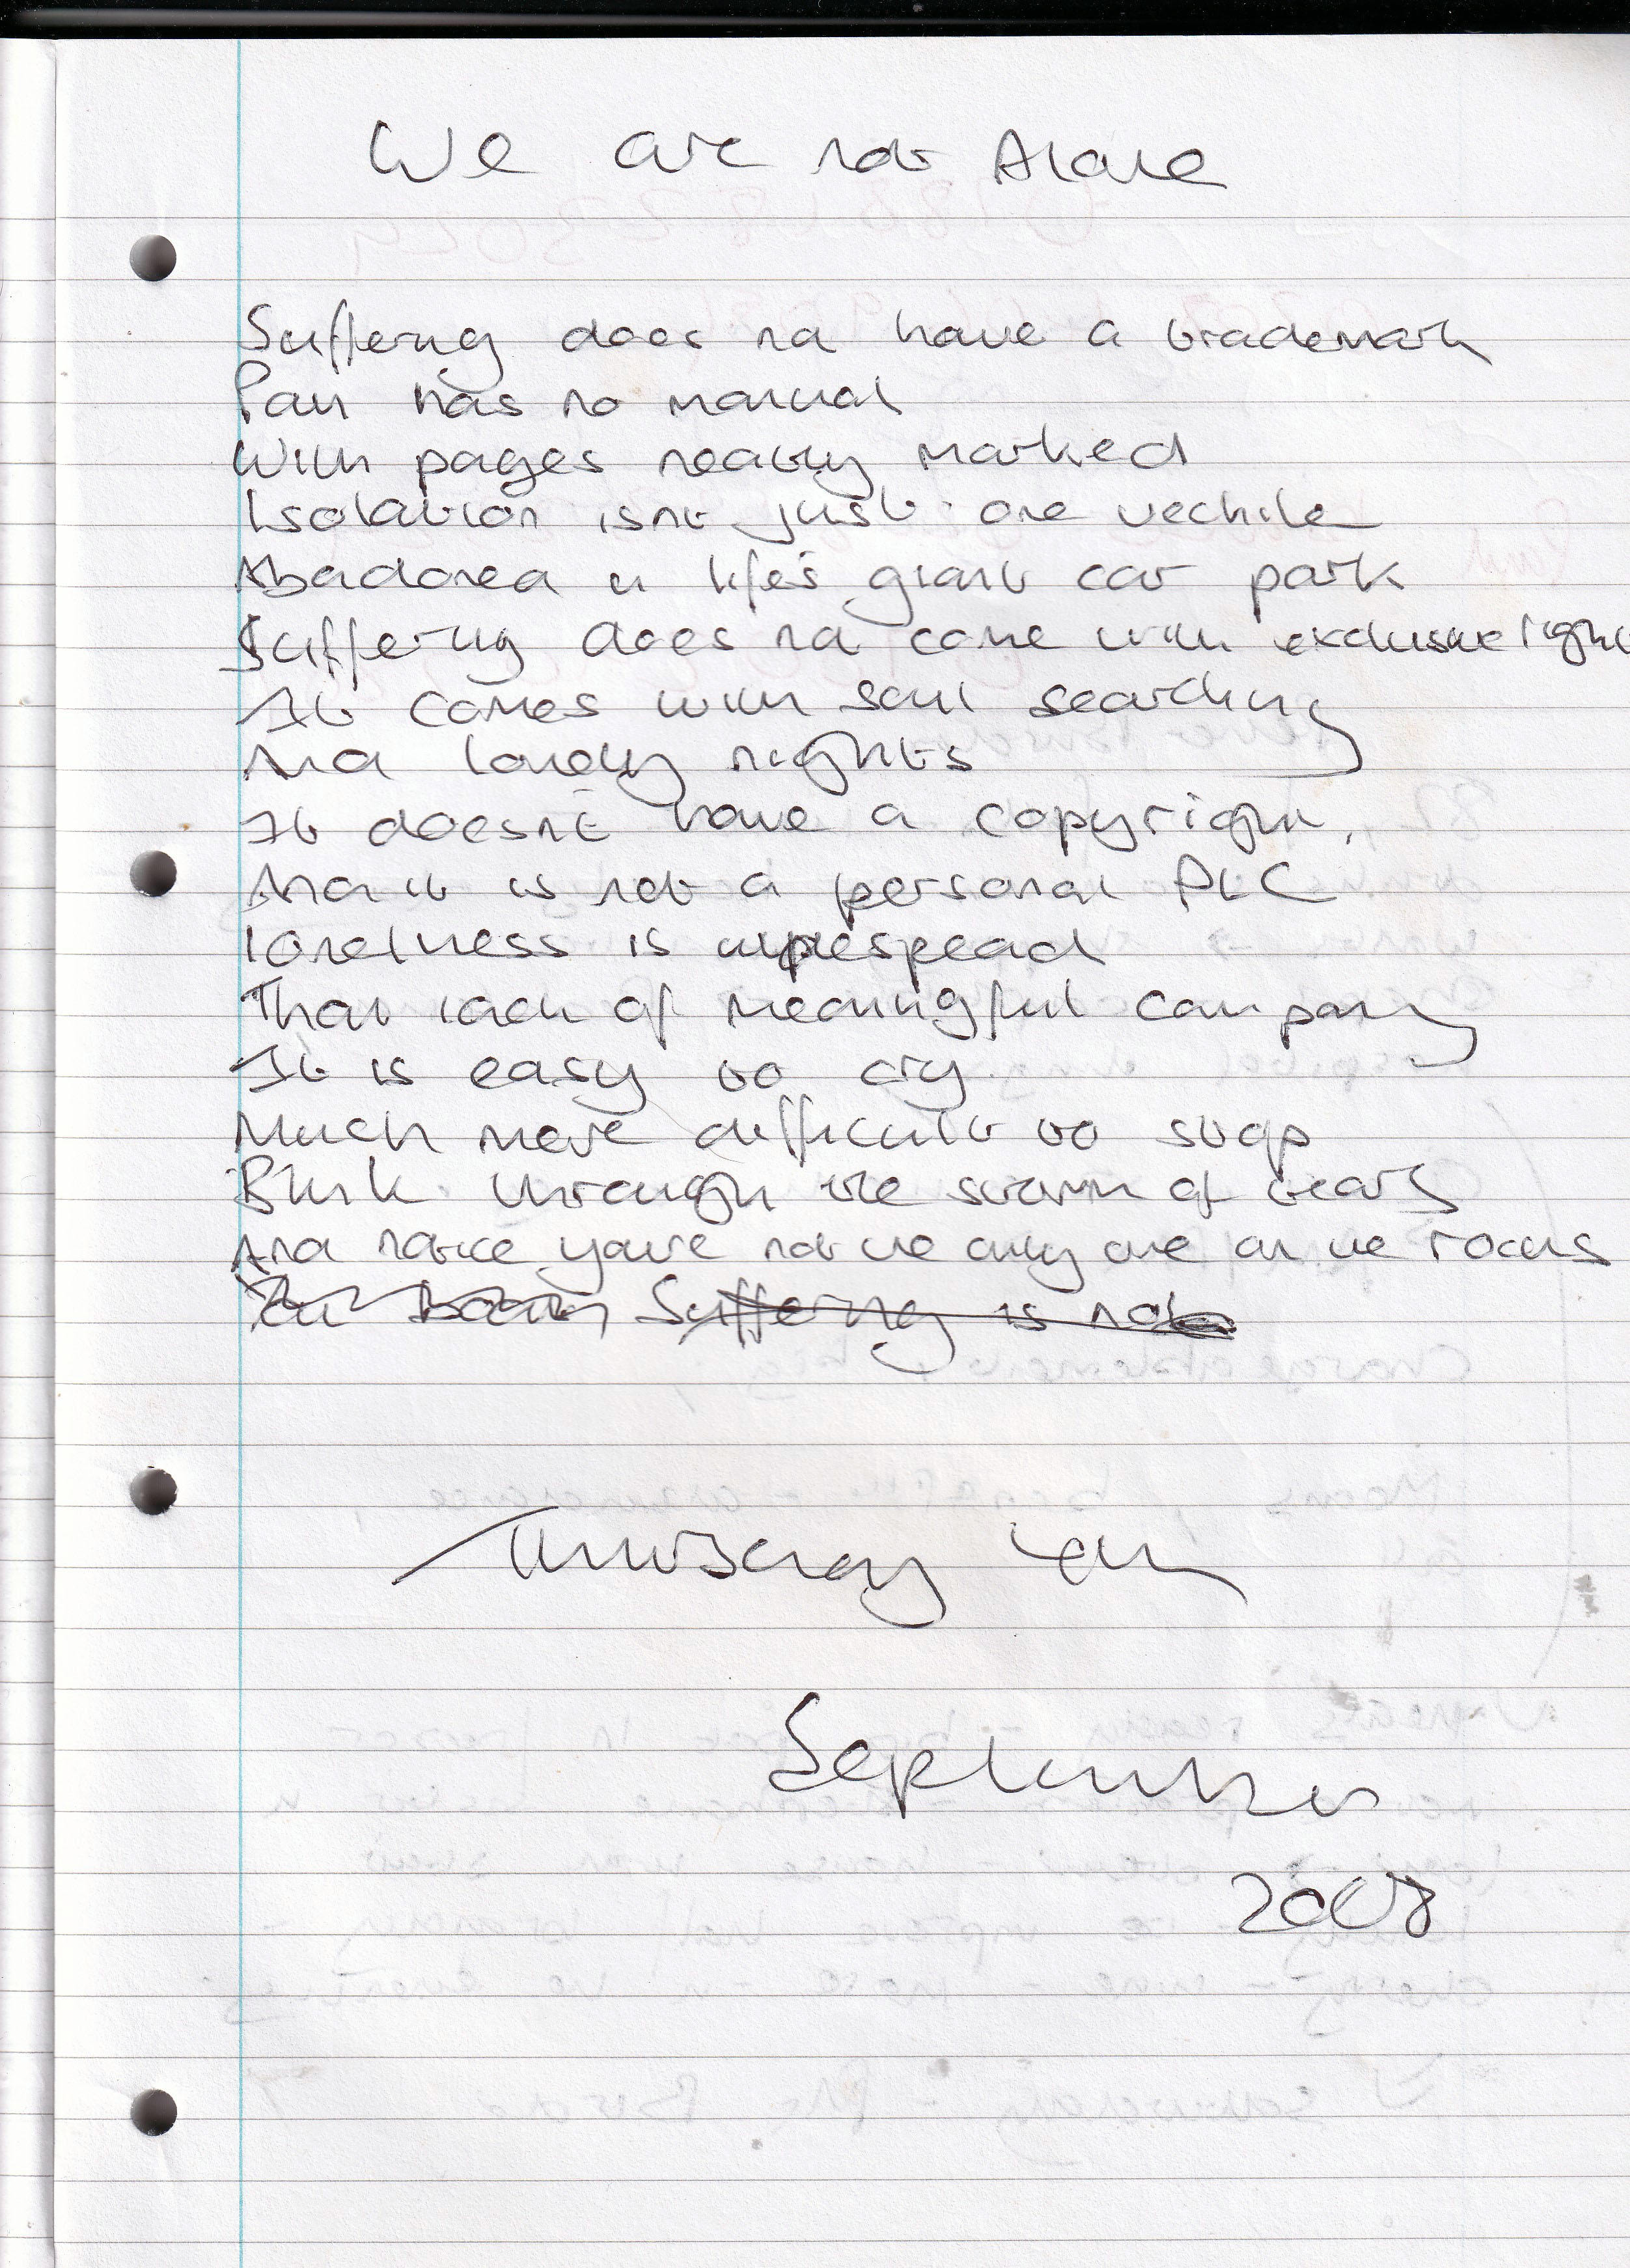 We are not Alone
Suffering does not have a trademark
Pain has no manual
With pages neatly marked
Isolation isnt just one vechile
Abadoned in life's giant car park
Suffering does not come with exclusive right
It comes with soul searching
And lonely nights
It doesn't have a copyright,
And it is not a personal PLC
loneliness is widespread
That lack of meaningful company
It is easy to cry
Much more difficult to stop
Blink through the storm of tears
And notice you're not the only one on the rocks
Suffering is not
Thursday
September
2008